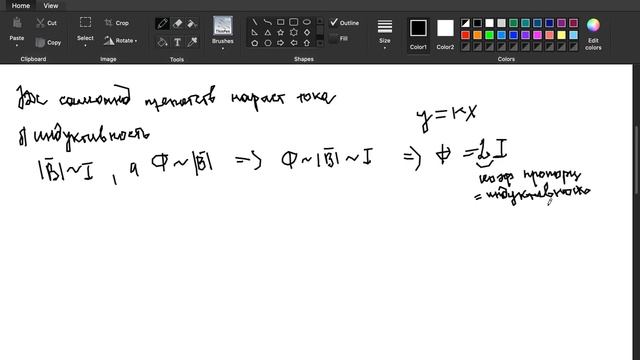 Home
View
Paste
Cut
Copy
Clipboard
Select
Crop
Resize
Rotate
Image
Tools
Brushes
Outline
Fill
Shapes
Color1
Color2
Edit colors
Colors
ЭДС самоинд препятств нараст тока
y = кx
д) индуктивность
|B̅| ~ I, а Ф ~ |B̅| => Ф ~ |B̅| ~ I => Ф = L I
коэф пропорц
= индуктивность